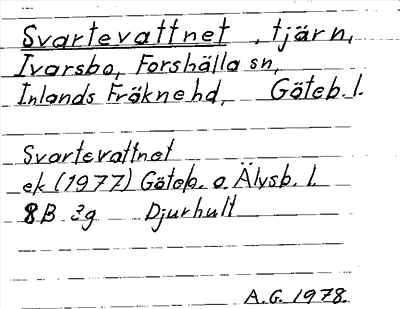 Svartevattnet, tjärn,
Ivarsbo, Forshälla sn,
Inlands Fräkne hd, Göteb. l.
Svartevattnet
ek (1977) Göteb. o. Älvsb. l.
8B 3g Djurhult
A.G. 1978.